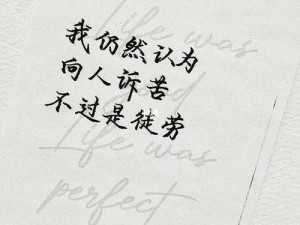 Life was
我仍然认为
向人诉苦
good
不过是徒劳
Life was
perfect